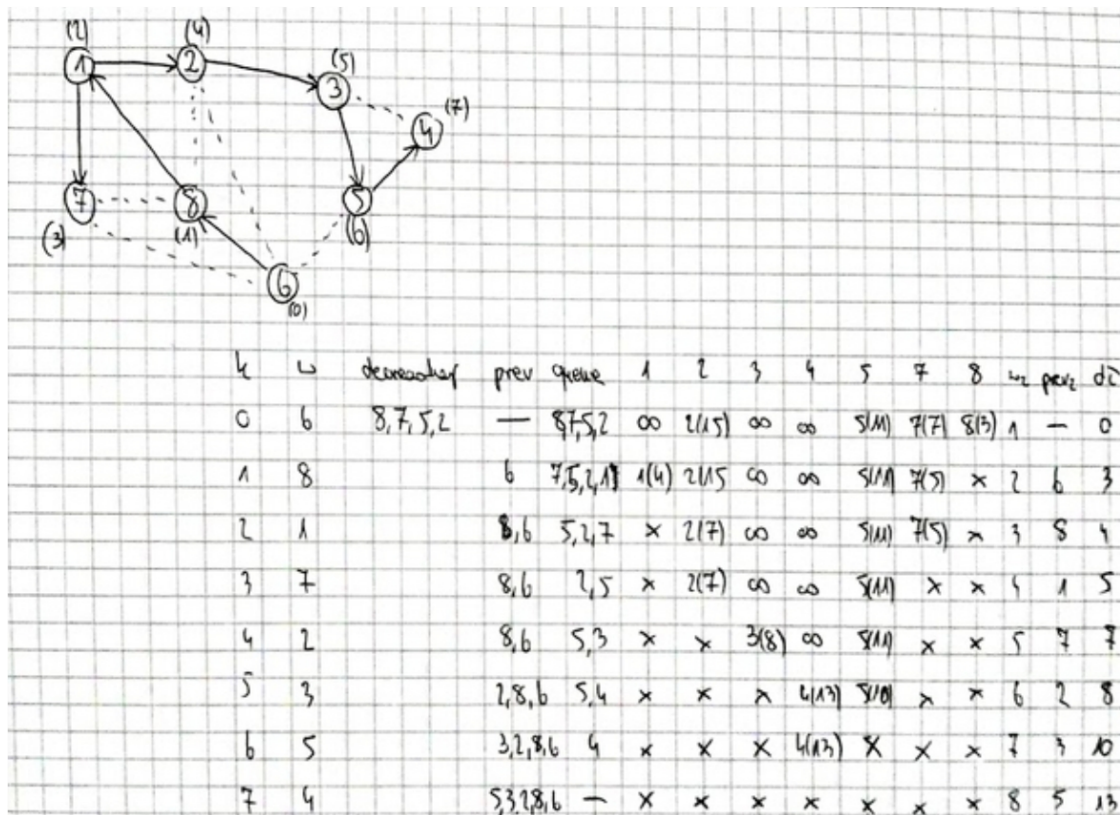 (2) (4)
1 2 (5)
3 (7)
4
7 8 5
(3) (1) (6)
6
(0)
prev queue 1 2 3 4 5 7 8
0 6 8,7,5,2 — 8,7,5,2 ∞ 2(15) ∞ ∞ 5(11) 7(7) 8(3) 1 — 0
1 8 6 7,5,2,1 1(4) 2(15 ∞ ∞ 5(11) 7(5) × 2 6 3
2 1 8,6 5,2,7 × 2(7) ∞ ∞ 5(11) 7(5) × 3 8 4
3 7 8,6 2,5 × 2(7) ∞ ∞ 5(11) × × 4 1 5
4 2 8,6 5,3 × × 3(8) ∞ 5(11) × × 5 7 7
5 3 2,8,6 5,4 × × × 4(13) 5(10) × × 6 2 8
6 5 3,2,8,6 4 × × × 4(13) × × × 7 3 10
7 4 5,3,2,8,6 — × × × × × × × 8 5 13